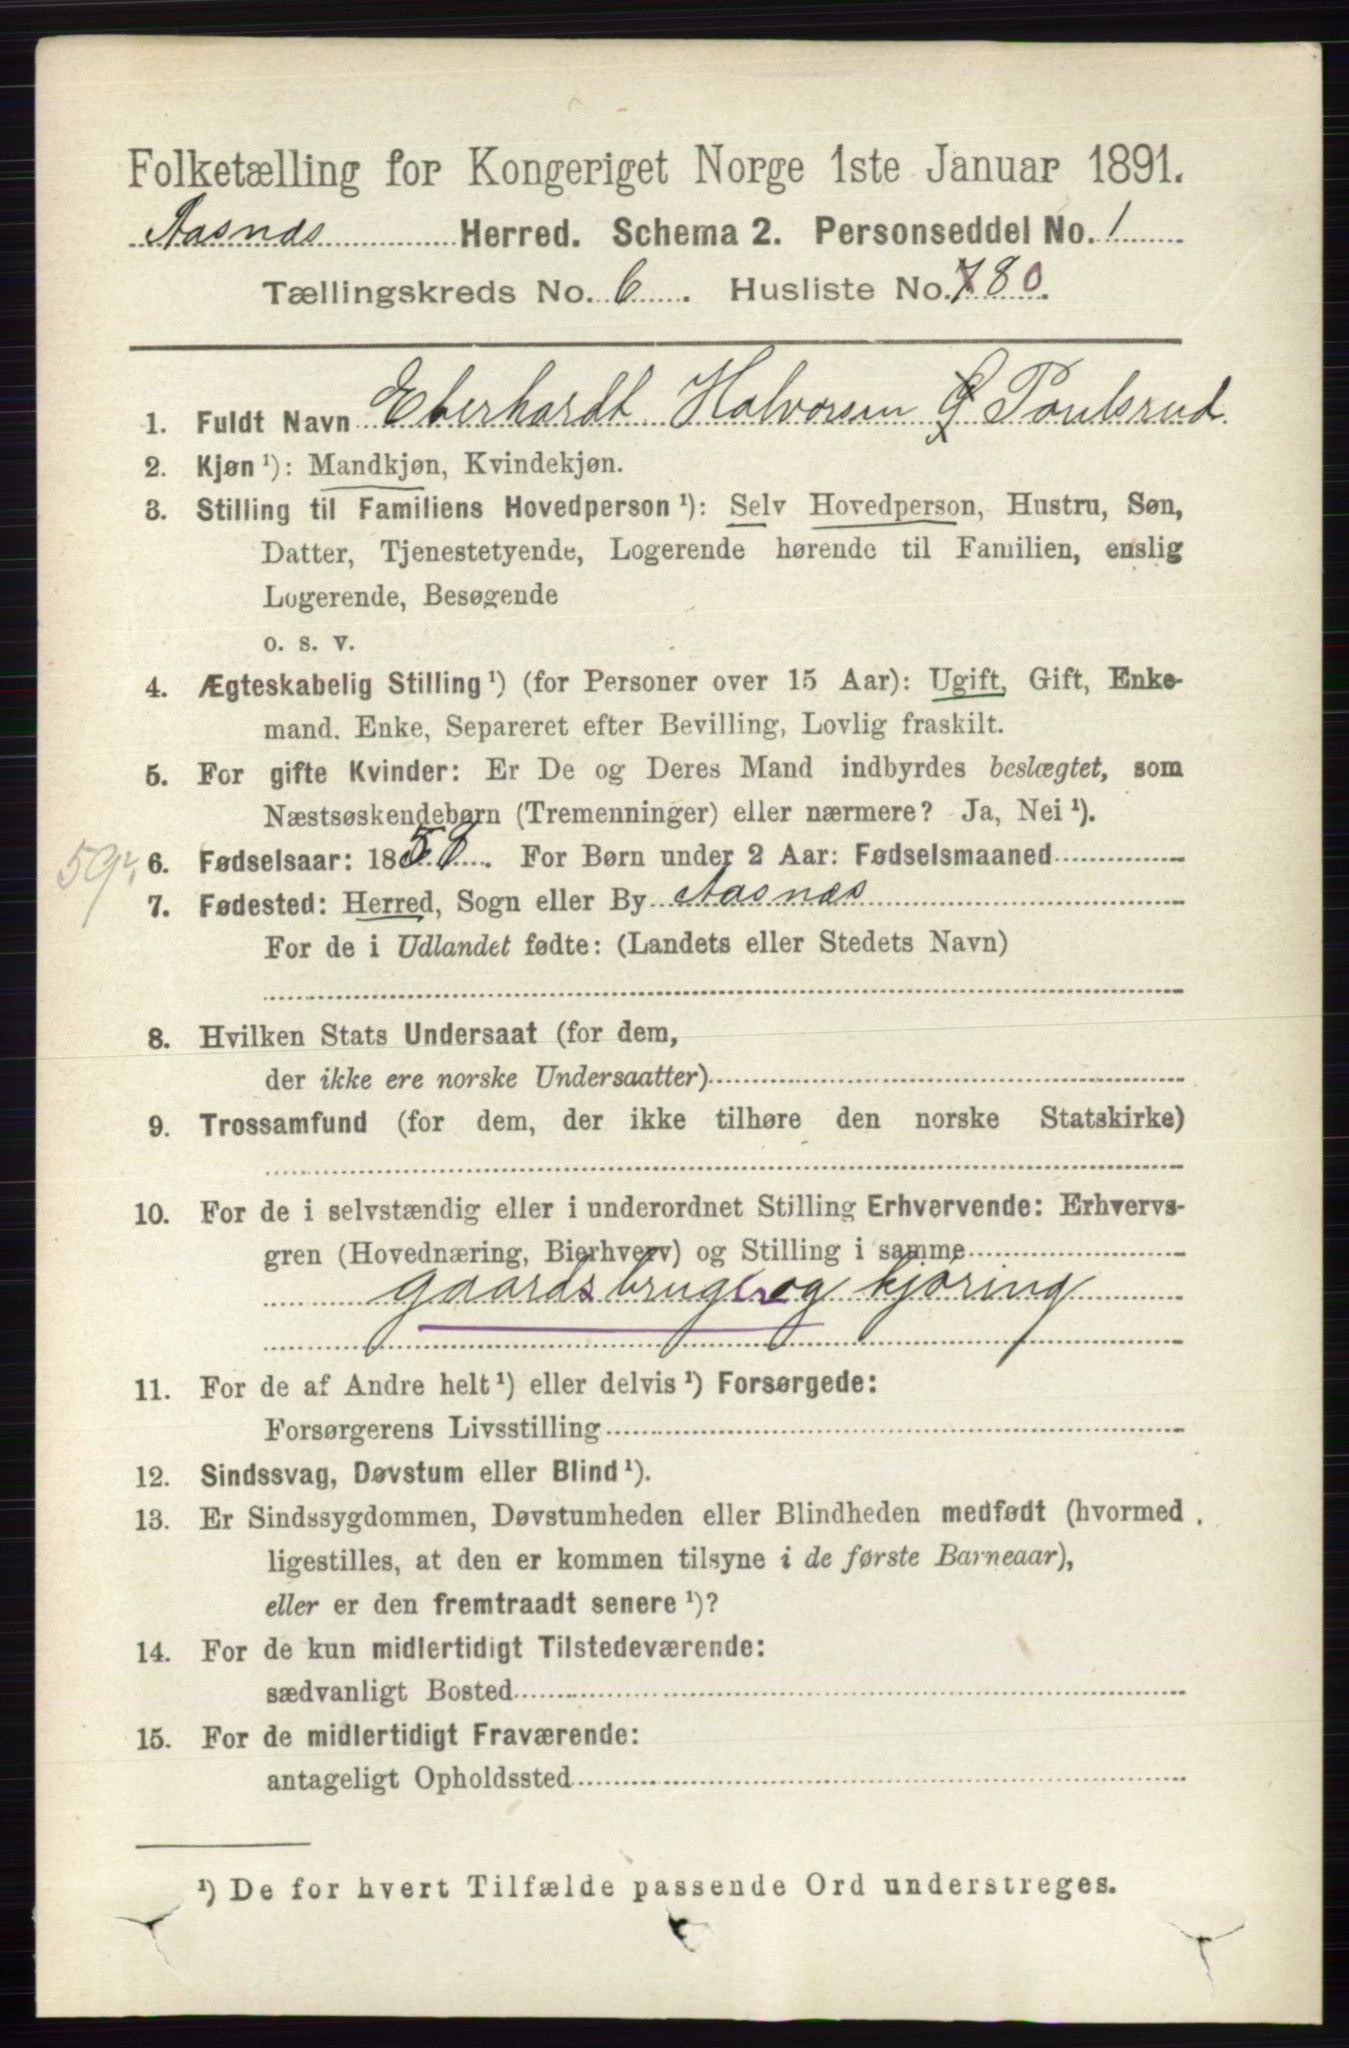 Folketælling for Kongeriget Norge 1ste Januar 1891.
Aasnæs Herred. Schema 2. Personseddel No. 1
Tællingskreds No. 6. Husliste No. 780.
1. Fuldt Navn Eberhardt Halvorsen G Poulsrud
2. Kjøn ¹): Mandkjøn, Kvindekjøn.
3. Stilling til Familiens Hovedperson ¹): Selv Hovedperson, Hustru, Søn,
Datter, Tjenestetyende, Logerende hørende til Familien, enslig
Logerende, Besøgende
o. s. v.
4. Ægteskabelig Stilling ¹) (for Personer over 15 Aar): Ugift, Gift, Enke-
mand. Enke, Separeret efter Bevilling, Lovlig fraskilt.
5. For gifte Kvinder: Er De og Deres Mand indbyrdes beslægtet, som
Næstsøskendebørn (Tremenninger) eller nærmere? Ja, Nei ¹).
6. Fødselsaar: 1858. For Børn under 2 Aar: Fødselsmaaned
7. Fødested: Herred, Sogn eller By Aasnæs
For de i Udlandet fødte: (Landets eller Stedets Navn)
8. Hvilken Stats Undersaat (for dem,
der ikke ere norske Undersaatter)
9. Trossamfund (for dem, der ikke tilhøre den norske Statskirke)
10. For de i selvstændig eller i underordnet Stilling Erhvervende: Erhvervs-
gren (Hovednæring, Bierhverv) og Stilling i samme
gaardsbruger og kjøring
11. For de af Andre helt ¹) eller delvis ¹) Forsørgede:
Forsørgerens Livsstilling
12. Sindssvag, Døvstum eller Blind ¹).
13. Er Sindssygdommen, Døvstumheden eller Blindheden medfødt (hvormed
ligestilles, at den er kommen tilsyne i de første Barneaar),
eller er den fremtraadt senere ¹)?
14. For de kun midlertidigt Tilstedeværende:
sædvanligt Bosted
15. For de midlertidigt Fraværende:
antageligt Opholdssted
¹) De for hvert Tilfælde passende Ord understreges.